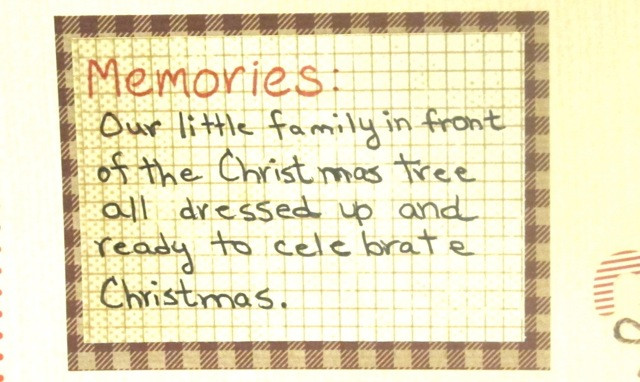 Memories:
Our little family in front
of the Christmas tree
all dressed up and
ready to celebrate
Christmas.